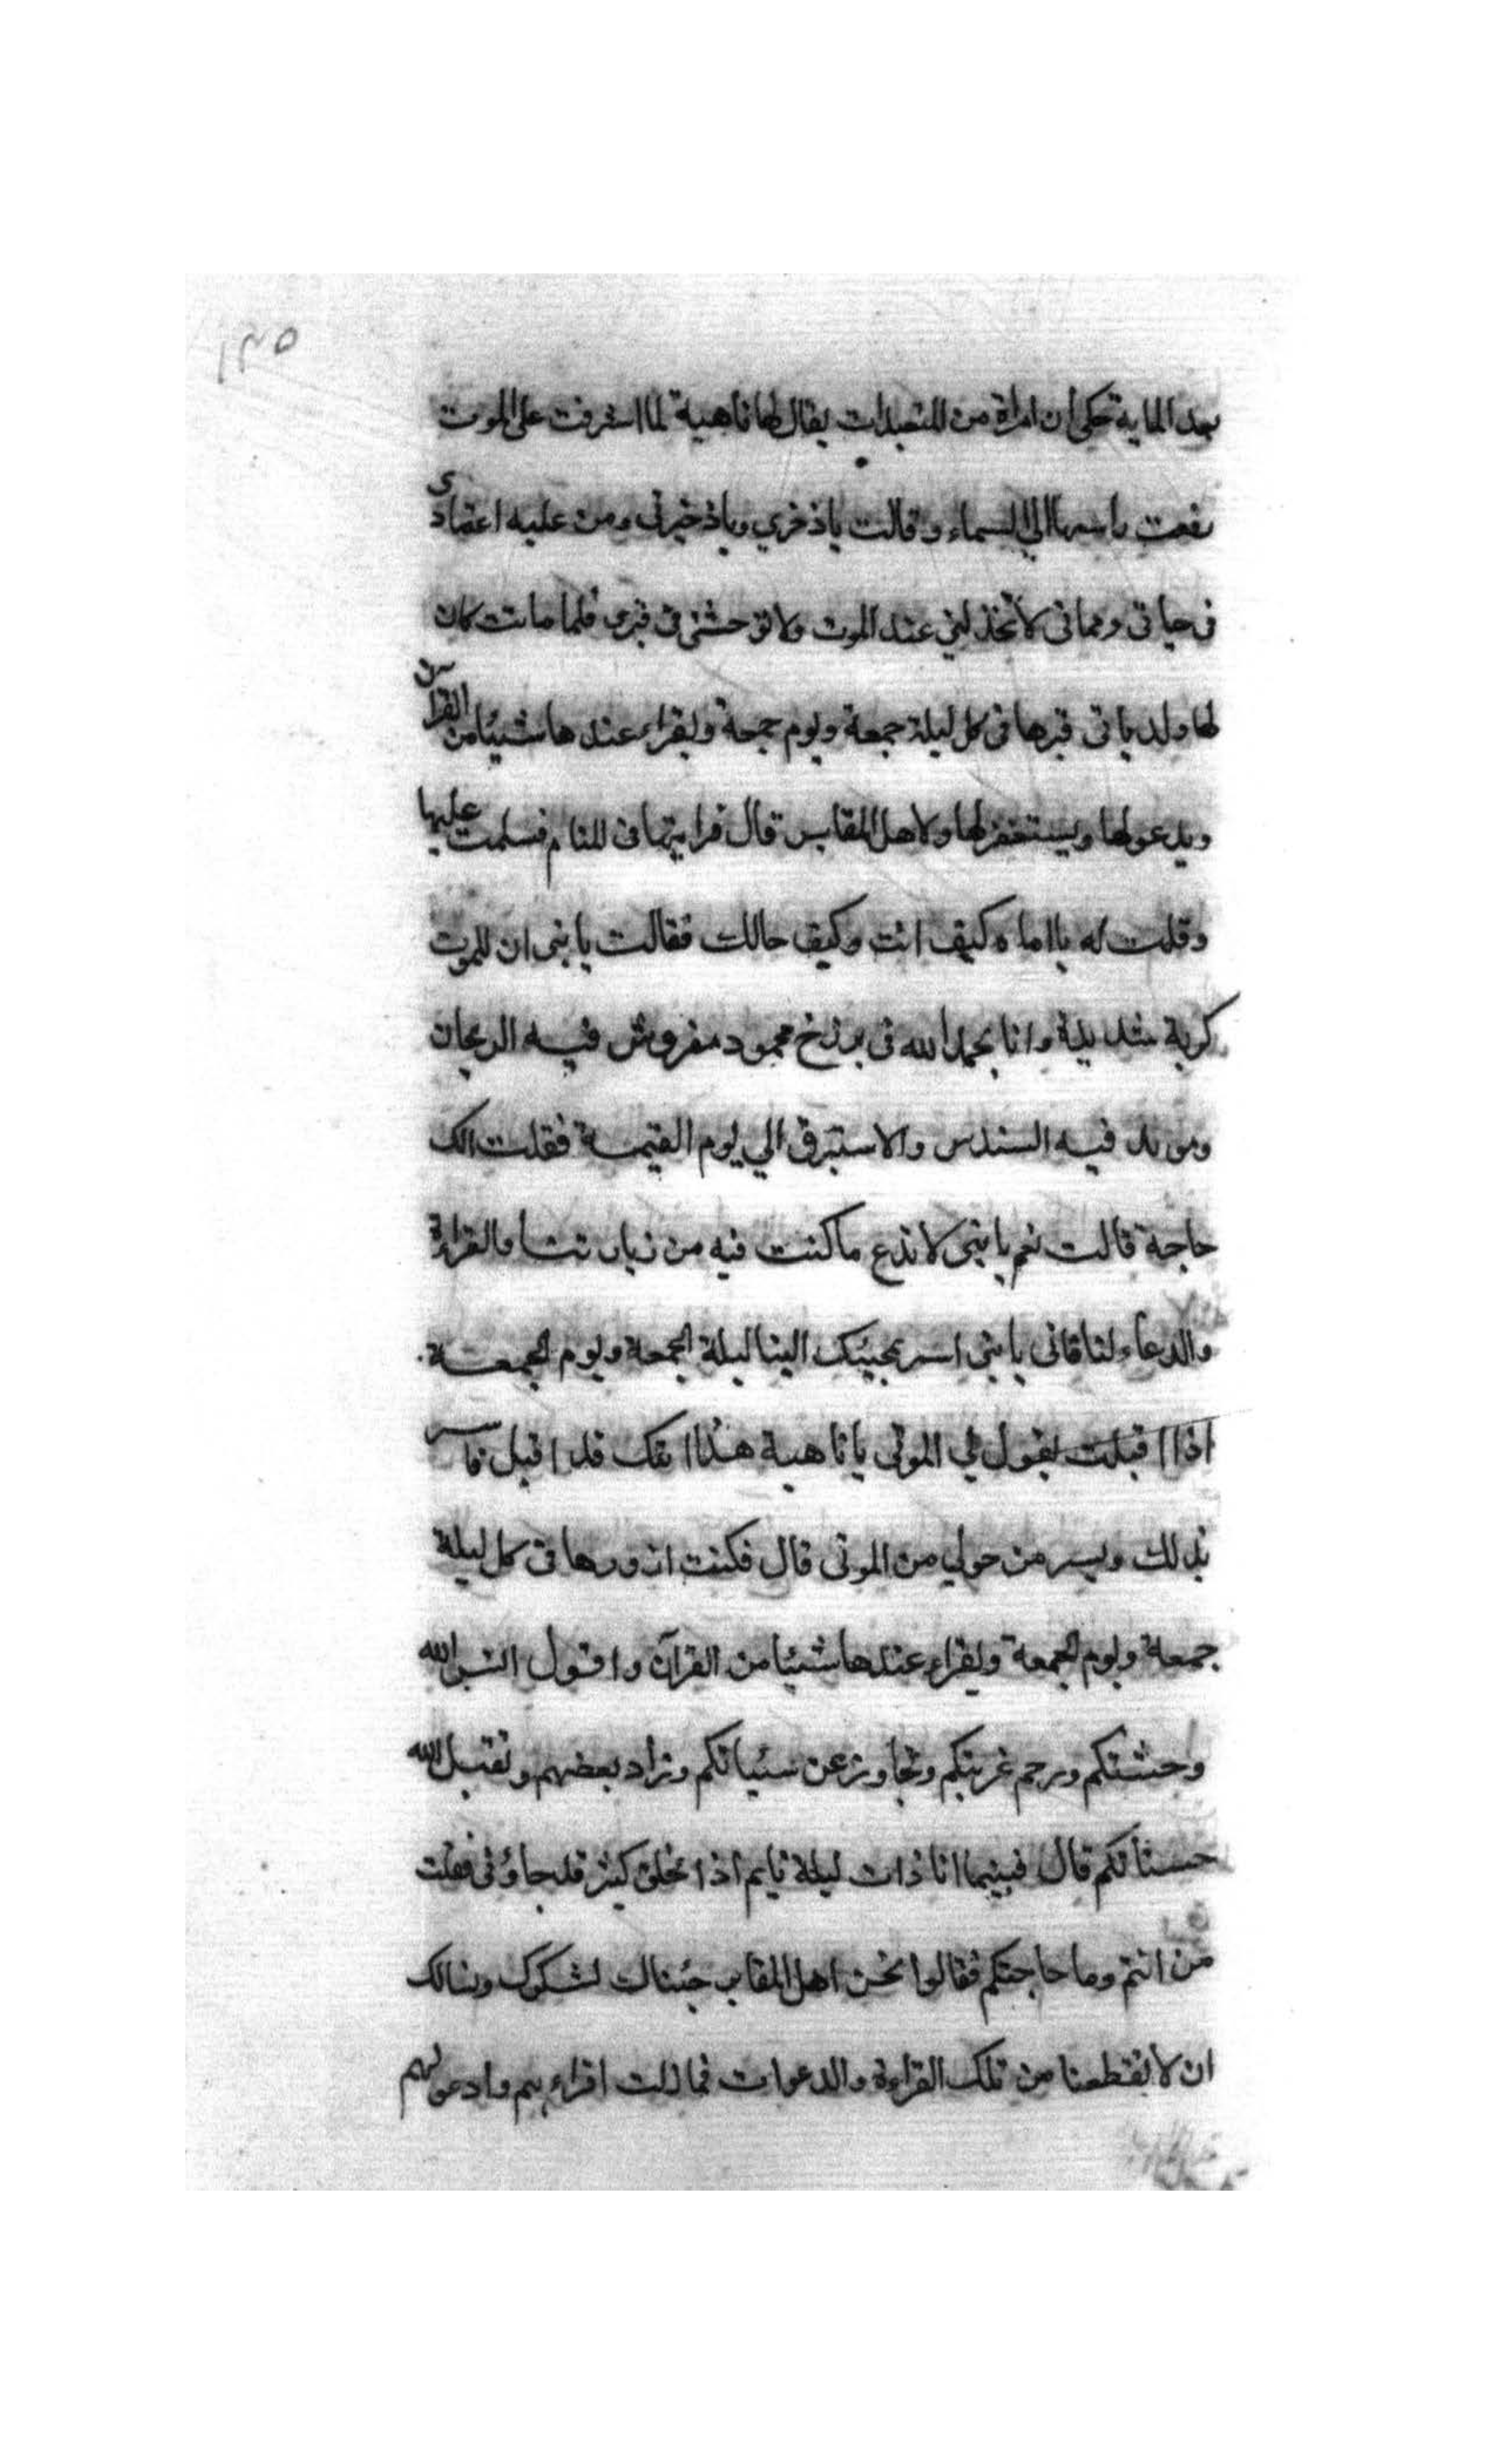 ١٣٥
بعد الماية حكي ان امراة من المتعبدات يقال لها ناهية لما اشرفت على الموت
رفعت راسها الي السماء وقالت ياذخري وياذخيرتى ومن عليه اعتمادى
فى حياتى ومماتى لا تخذلني عند الموت ولا توحشنى فى قبرى فلما ماتت كان
لها ولد ياتى قبرها فى كل ليلة جمعة ويوم جمعة ويقراء عندها شيئا من القرآن
ويدعولها ويستغفرلها ولاهل المقابر قال فرايتها فى المنام فسلمت عليها
وقلت له يا اماه كيف انت وكيف حالك فقالت يا بنى ان للموت
كربة شديدة وانا بحمد الله فى برزخ محمود مفروش فيه الريحان
وموسد فيه السندس والاستبرق الي يوم القيمة فقلت الك
حاجة قالت نعم يا بنى لا تدع ما كنت فيه من زيارتنا والقراءة
والدعاء لنا فانى يا بنى اسر بمجيئك الينا ليلة الجمعة ويوم الجمعة
اذا اقبلت يقول لي الموتى يا ناهية هذا ابنك قد اقبل فاسر
بذلك ويسر من حولي من الموتى قال فكنت ازورها فى كل ليلة
جمعة ويوم الجمعة ويقراء عندها شيئا من القرآن واقول انس الله
وحشتكم ورحم غربتكم وتجاوز عن سئياتكم وزاد بعضهم وتقبل الله
حسناتكم قال فبينما انا ذات ليلة نايم اذا بخلق كثير قد جاؤنى فقلت
من انتم وما حاجتكم فقالوا نحن اهل المقابر جئناك لشكرك ونسالك
ان لا تقطعنا من تلك القراءة والدعوات فما زلت اقراء بهم وادعولهم